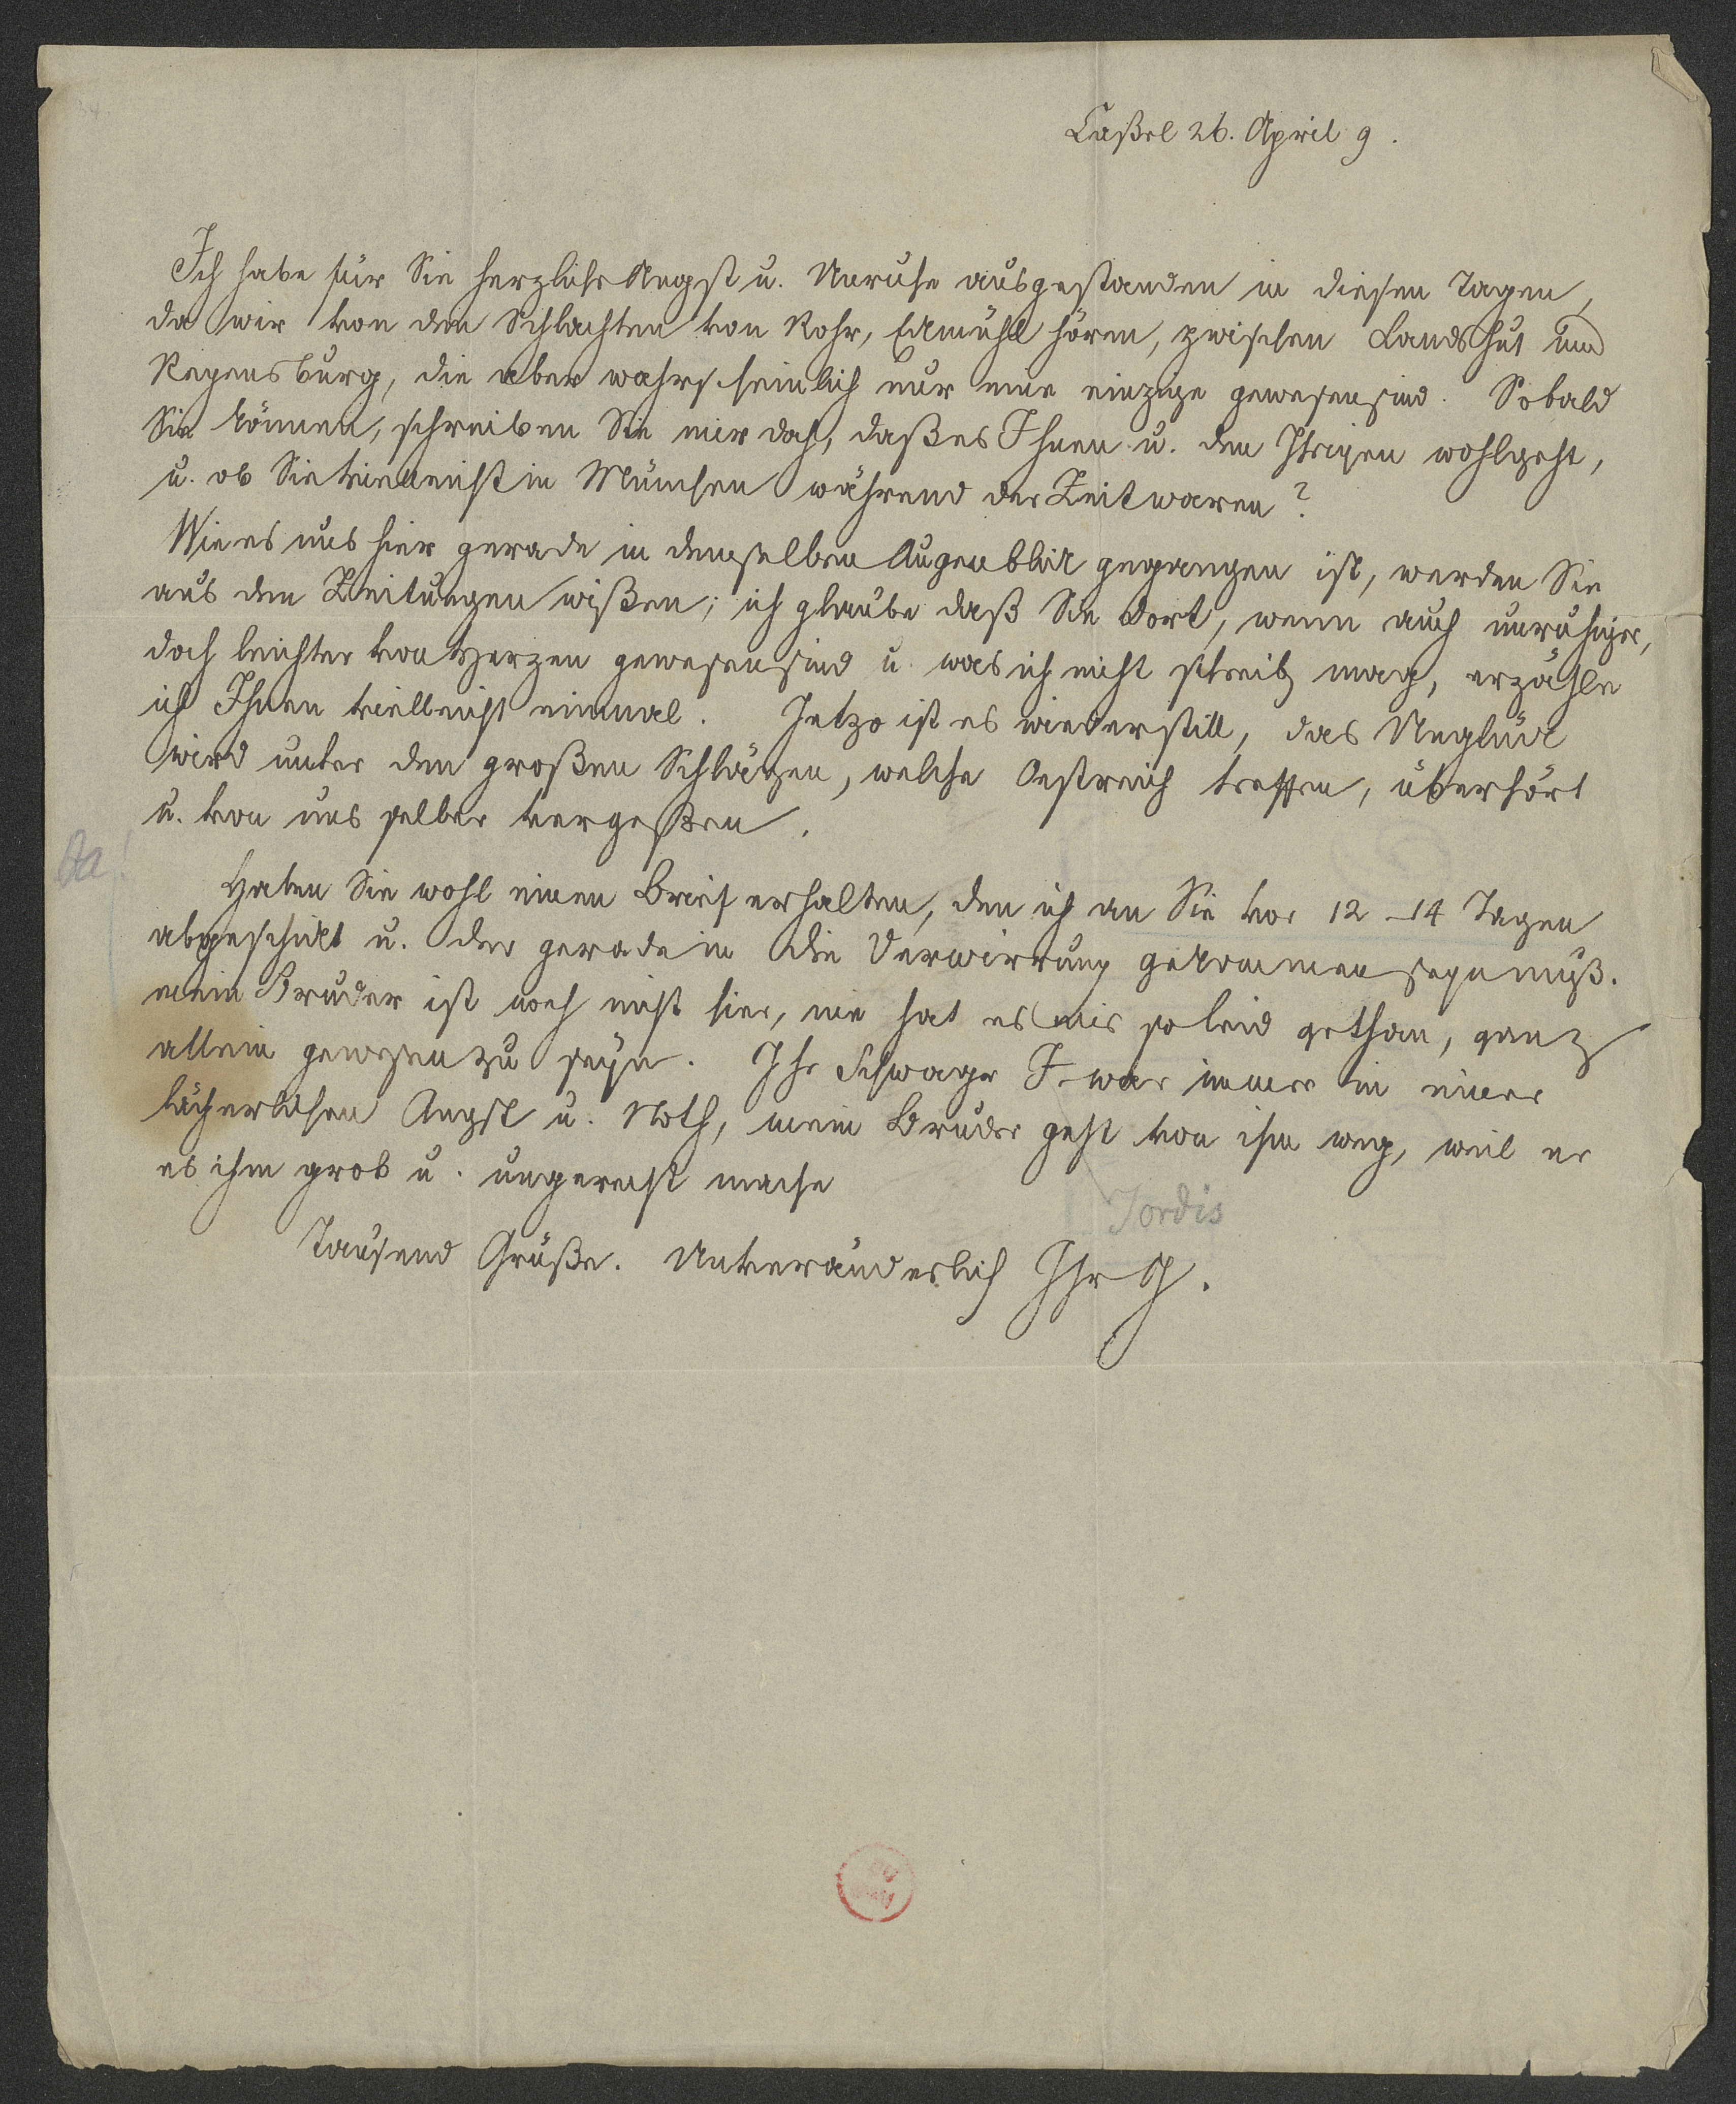 Caßel 26. April 9.
Ich habe für Sie herzliche Angst u. Unruhe ausgestanden in diesen Tagen,
da wir von den Schlachten von Rohr, Eckmühl hören, zwischen Landshut und
Regensburg, die aber wahrscheinlich nur eine einzige gewesen sind. Sobald
Sie können, schreiben Sie mir doch, daß es Ihnen u. den Ihrigen wohlgeht,
u. ob Sie vielleicht in München während der Zeit waren?
Wie es uns hier gerade in demselben Augenblick gegangen ist, werden Sie
aus den Zeitungen wißen; ich glaube daß Sie dort, wenn auch unruhiger,
doch leichter von Herzen gewesen sind u. was ich nicht schreib mag, erzähle
ich Ihnen vielleicht einmal. Jetzo ist es wieder still, das Unglück
wird unter den großen Schlägen, welche Oestreich treffen, überhört
u. von uns selber vergeßen.
Haben Sie wohl einen Brief erhalten, den ich an Sie vor 12–14 Tagen
abgeschickt u. der gerade in die Verwirrung gekommen seyn muß.
mein Bruder ist noch nicht hier, nie hat es mir so leid gethan, ganz
allein gewesen zu seyn. Ihr Schwager J. war immer in einer
lächerlichen Angst u. Noth, mein Bruder geht von ihm weg, weil er
es ihm grob u. ungerecht mache
Jordis
Tausend Grüße. Unveränderlich Ihr G.